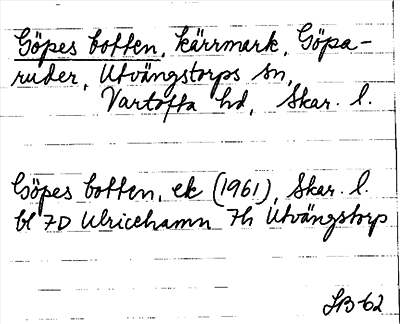 Göpes botten, kärrmark, Göpa-
ruder, Utvängstorps sn,
Vartofta hd, Skar. l.
Göpes botten, ek (1961), Skar. l.
bl 7D Ulricehamn 7h Utvängstorp
SB 62